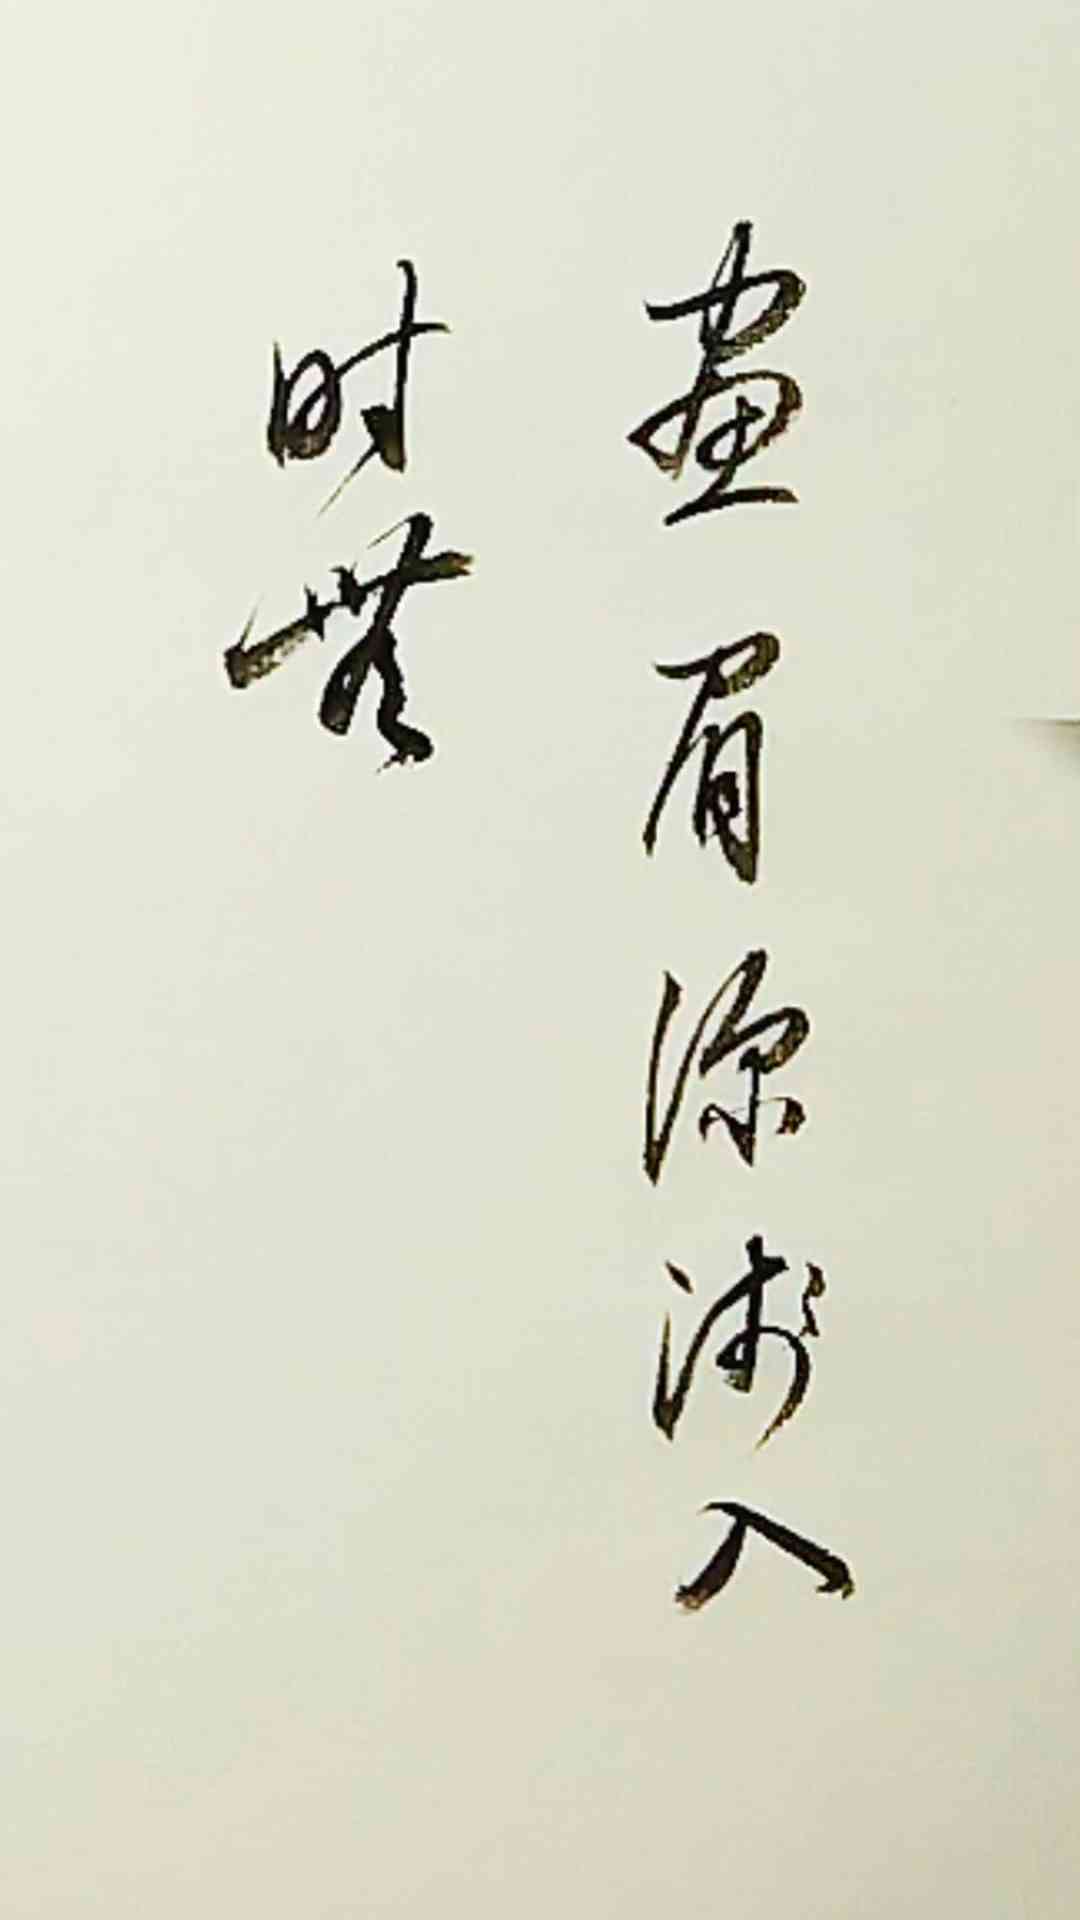 画眉深浅入
时无